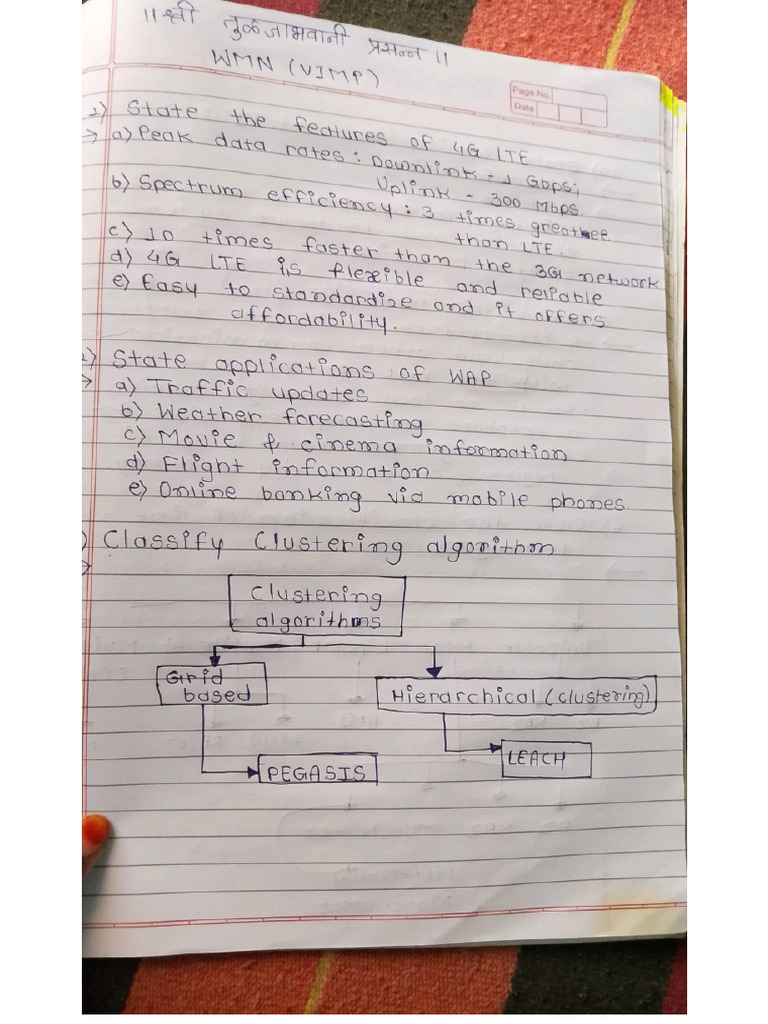 ॥ श्री तुळजाभवानी प्रसन्न ॥
WMN (VIMP)
Page No.
Date
1) State the features of 4G LTE
→ a) Peak data rates : Downlink - 1 Gbps;
Uplink - 300 Mbps.
b) Spectrum efficiency : 3 times greater
than LTE.
c) 10 times faster than the 3G network
d) 4G LTE is flexible and reliable
e) Easy to standardize and it offers
affordability.
2) State applications of WAP
→ a) Traffic updates
b) Weather forecasting
c) Movie & cinema information
d) Flight information
e) Online banking via mobile phones.
) Classify Clustering algorithm
→
Clustering
algorithms
Grid
based
Hierarchical (clustering)
PEGASIS
LEACH